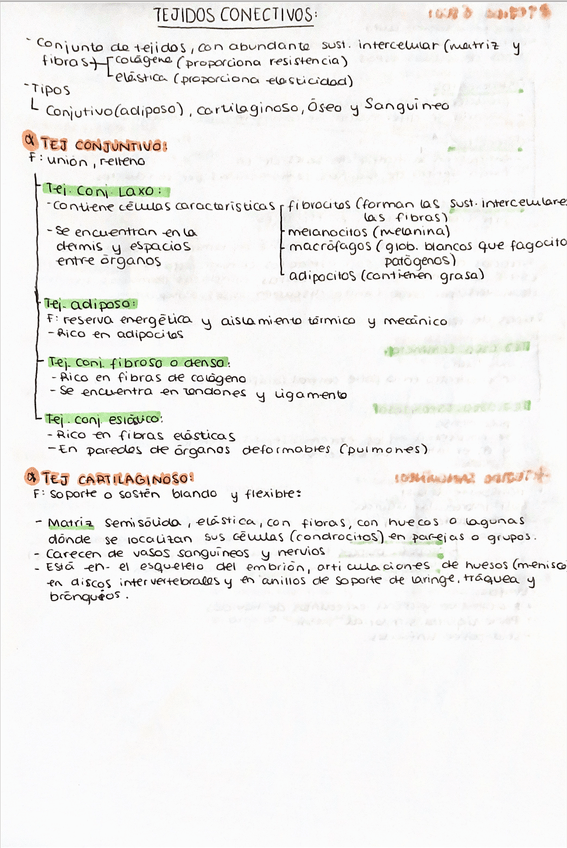 TEJIDOS CONECTIVOS:
- Conjunto de tejidos, con abundante sust. intercelular (matriz y
fibras → colágeno (proporciona resistencia)
elástica (proporciona elasticidad)
- Tipos
Conjutivo (adiposo), cartilaginoso, Óseo y Sanguíneo
α TEJ CONJUNTIVO:
F: unión, relleno
Tej. Conj. Laxo:
- Contiene células características
fibrocitos (forman las sust. intercelulares
las fibras)
melanocitos (melanina)
macrófagos (glob. blancos que fagocito
patógenos)
adipocitos (contienen grasa)
- Se encuentran en la
dermis y espacios
entre órganos
Tej. adiposo:
F: reserva energética y aislamiento térmico y mecánico
- Rico en adipocitos
Tej. Conj. fibroso o denso:
- Rico en fibras de colágeno
- Se encuentra en tendones y ligamento
Tej. conj elástico:
- Rico en fibras elásticas
- En paredes de órganos deformables (pulmones)
α TEJ CARTILAGINOSO:
F: soporte o sostén blando y flexible:
- Matriz semisólida, elástica, con fibras, con huecos o lagunas
dónde se localizan sus células (condrocitos) en parejas o grupos.
- Carecen de vasos sanguíneos y nervios
- Está en el esqueleto del embrión, articulaciones de huesos (menisco
en discos intervertebrales y en anillos de soporte de laringe, tráquea y
brónquios.